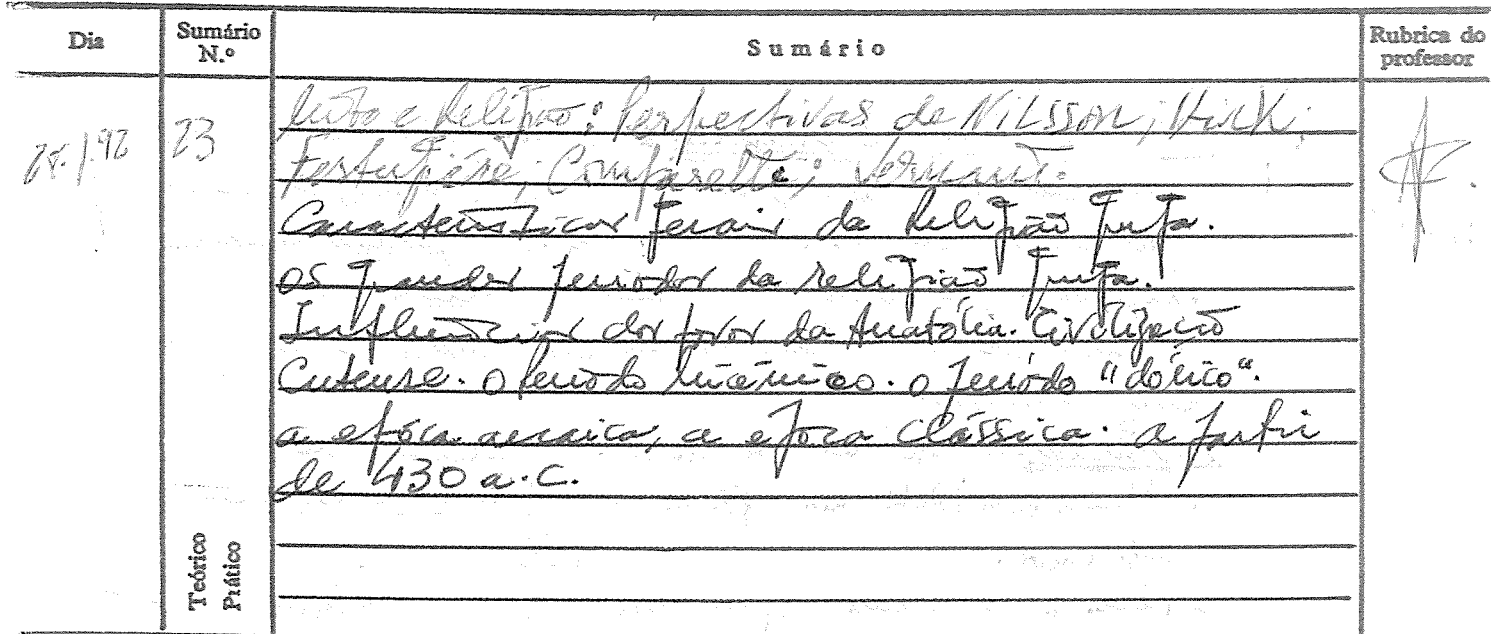 Dia Sumário N.º Sumário Rubrica do professor
23
Mito e Religião: Perspectivas de Nilsson; Kirk;
Festugière; Comparetti; Vernant.
Características gerais da Religião grega.
Os grandes períodos da religião grega.
Influências dos povos da Anatólia. Civilização
Cretense. O período micénico. O período "dórico".
a época arcaica, a época clássica. a partir
de 430 a.C.
Teórico
Prático